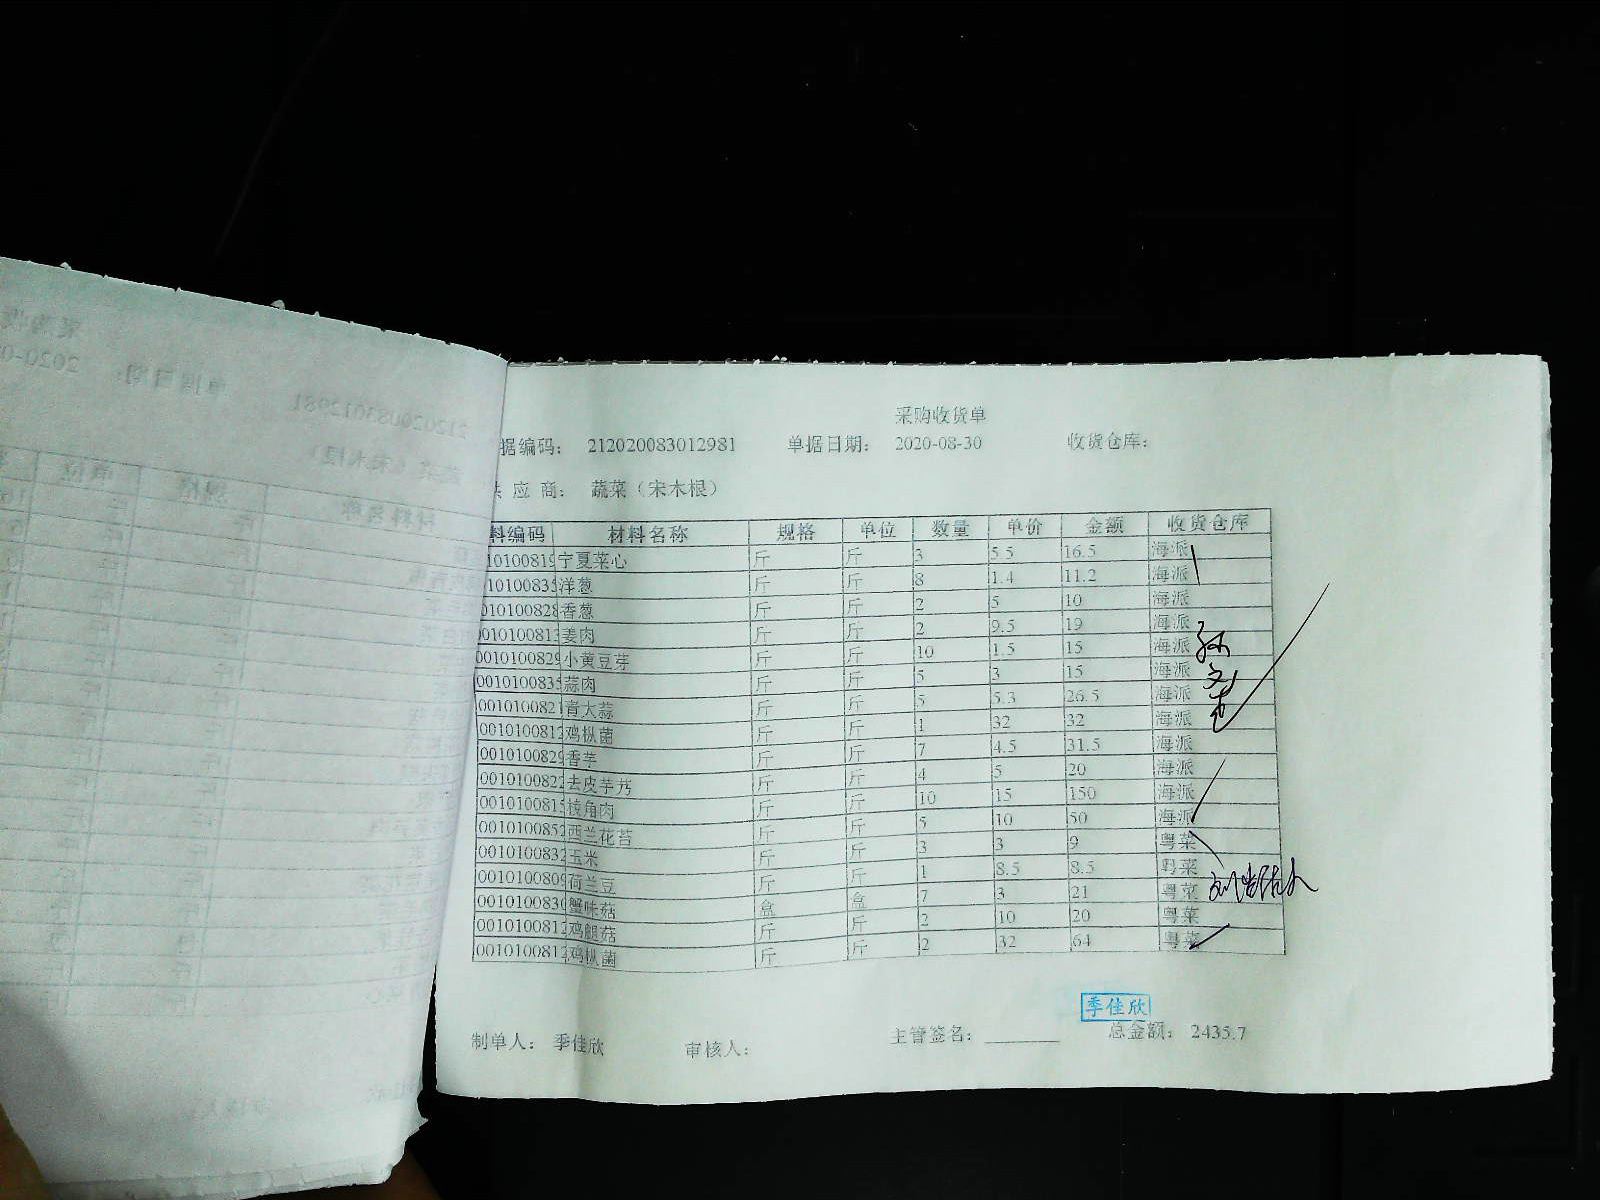 采购收货单
据编码： 212020083012981 单据日期： 2020-08-30 收货仓库：
供 应 商： 蔬菜（宋木根）
料编码 材料名称 规格 单位 数量 单价 金额 收货仓库
010100819 宁夏菜心 斤 斤 3 5.5 16.5 海派
010100835 洋葱 斤 斤 8 1.4 11.2 海派
010100828 香葱 斤 斤 2 5 10 海派
0010100813 姜肉 斤 斤 2 9.5 19 海派
0010100829 小黄豆芽 斤 斤 10 1.5 15 海派
0010100835 蒜肉 斤 斤 5 3 15 海派
001010082 青大蒜 斤 斤 5 5.3 26.5 海派
0010100812 鸡枞菌 斤 斤 1 32 32 海派
0010100829 香芋 斤 斤 7 4.5 31.5 海派
0010100822 去皮芋艿 斤 斤 4 5 20 海派
0010100815 棱角肉 斤 斤 10 15 150 海派
0010100852 西兰花苔 斤 斤 5 10 50 海派
0010100832 玉米 斤 斤 3 3 9 粤菜
0010100809 荷兰豆 斤 斤 1 8.5 8.5 粤菜
0010100830 蟹味菇 盒 盒 7 3 21 粤菜
0010100812 鸡腿菇 斤 斤 2 10 20 粤菜
0010100812 鸡枞菌 斤 斤 2 32 64 粤菜
季佳欣
制单人： 季佳欣 审核人： 主管签名： 总金额： 2435.7